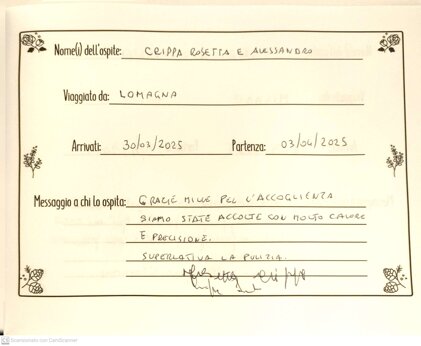 Nome(i) dell'ospite: CRIPPA ROSETTA E ALESSANDRO
Viaggiato da: LOMAGNA
Arrivati: 30/03/2025 Partenza: 03/04/2025
Messaggio a chi lo ospita: GRAZIE MILLE PER L'ACCOGLIENZA
SIAMO STATE ACCOLTE CON MOLTO CALORE
E PRECISIONE.
SUPERLATIVA LA PULIZIA.
Scansionato con CamScanner